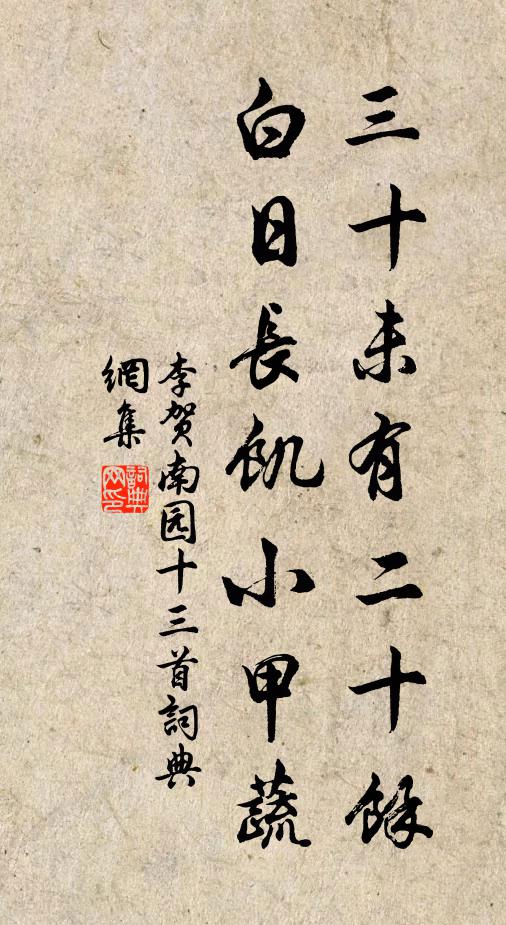 三十未有二十餘
白日長飢小甲蔬
李贺南园十三首詞典
網集
詞典網印